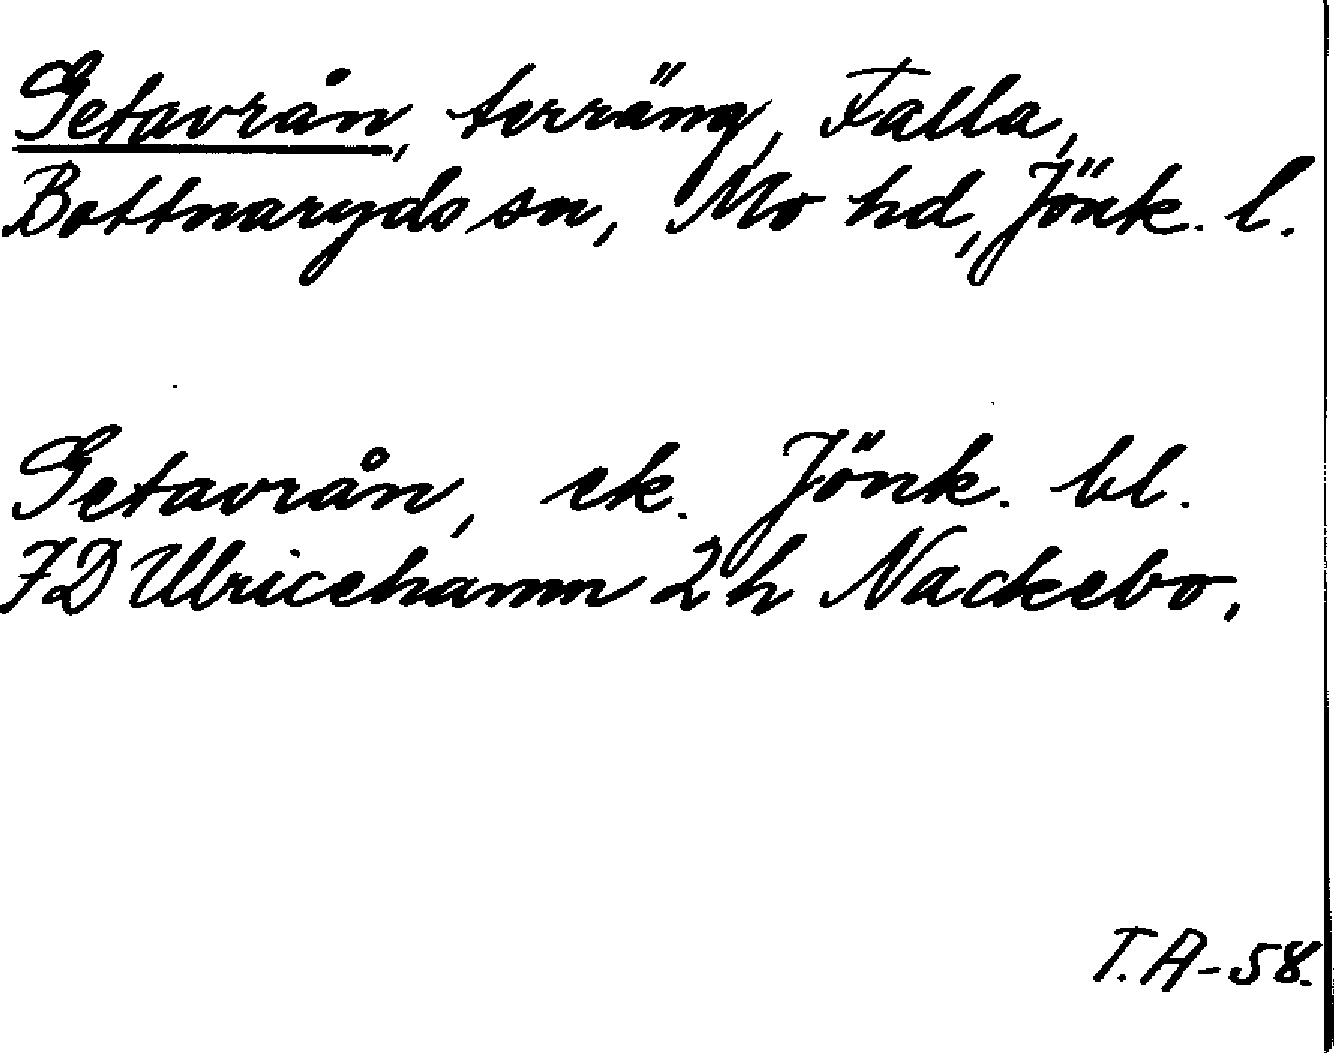 Getavrån, terräng, Falla,
Bottnaryds sn, Mo hd, Jönk. l.
Getavrån, ek. Jönk. bl.
7D Ulricehamn 2h Nackebo.
T.A-58.